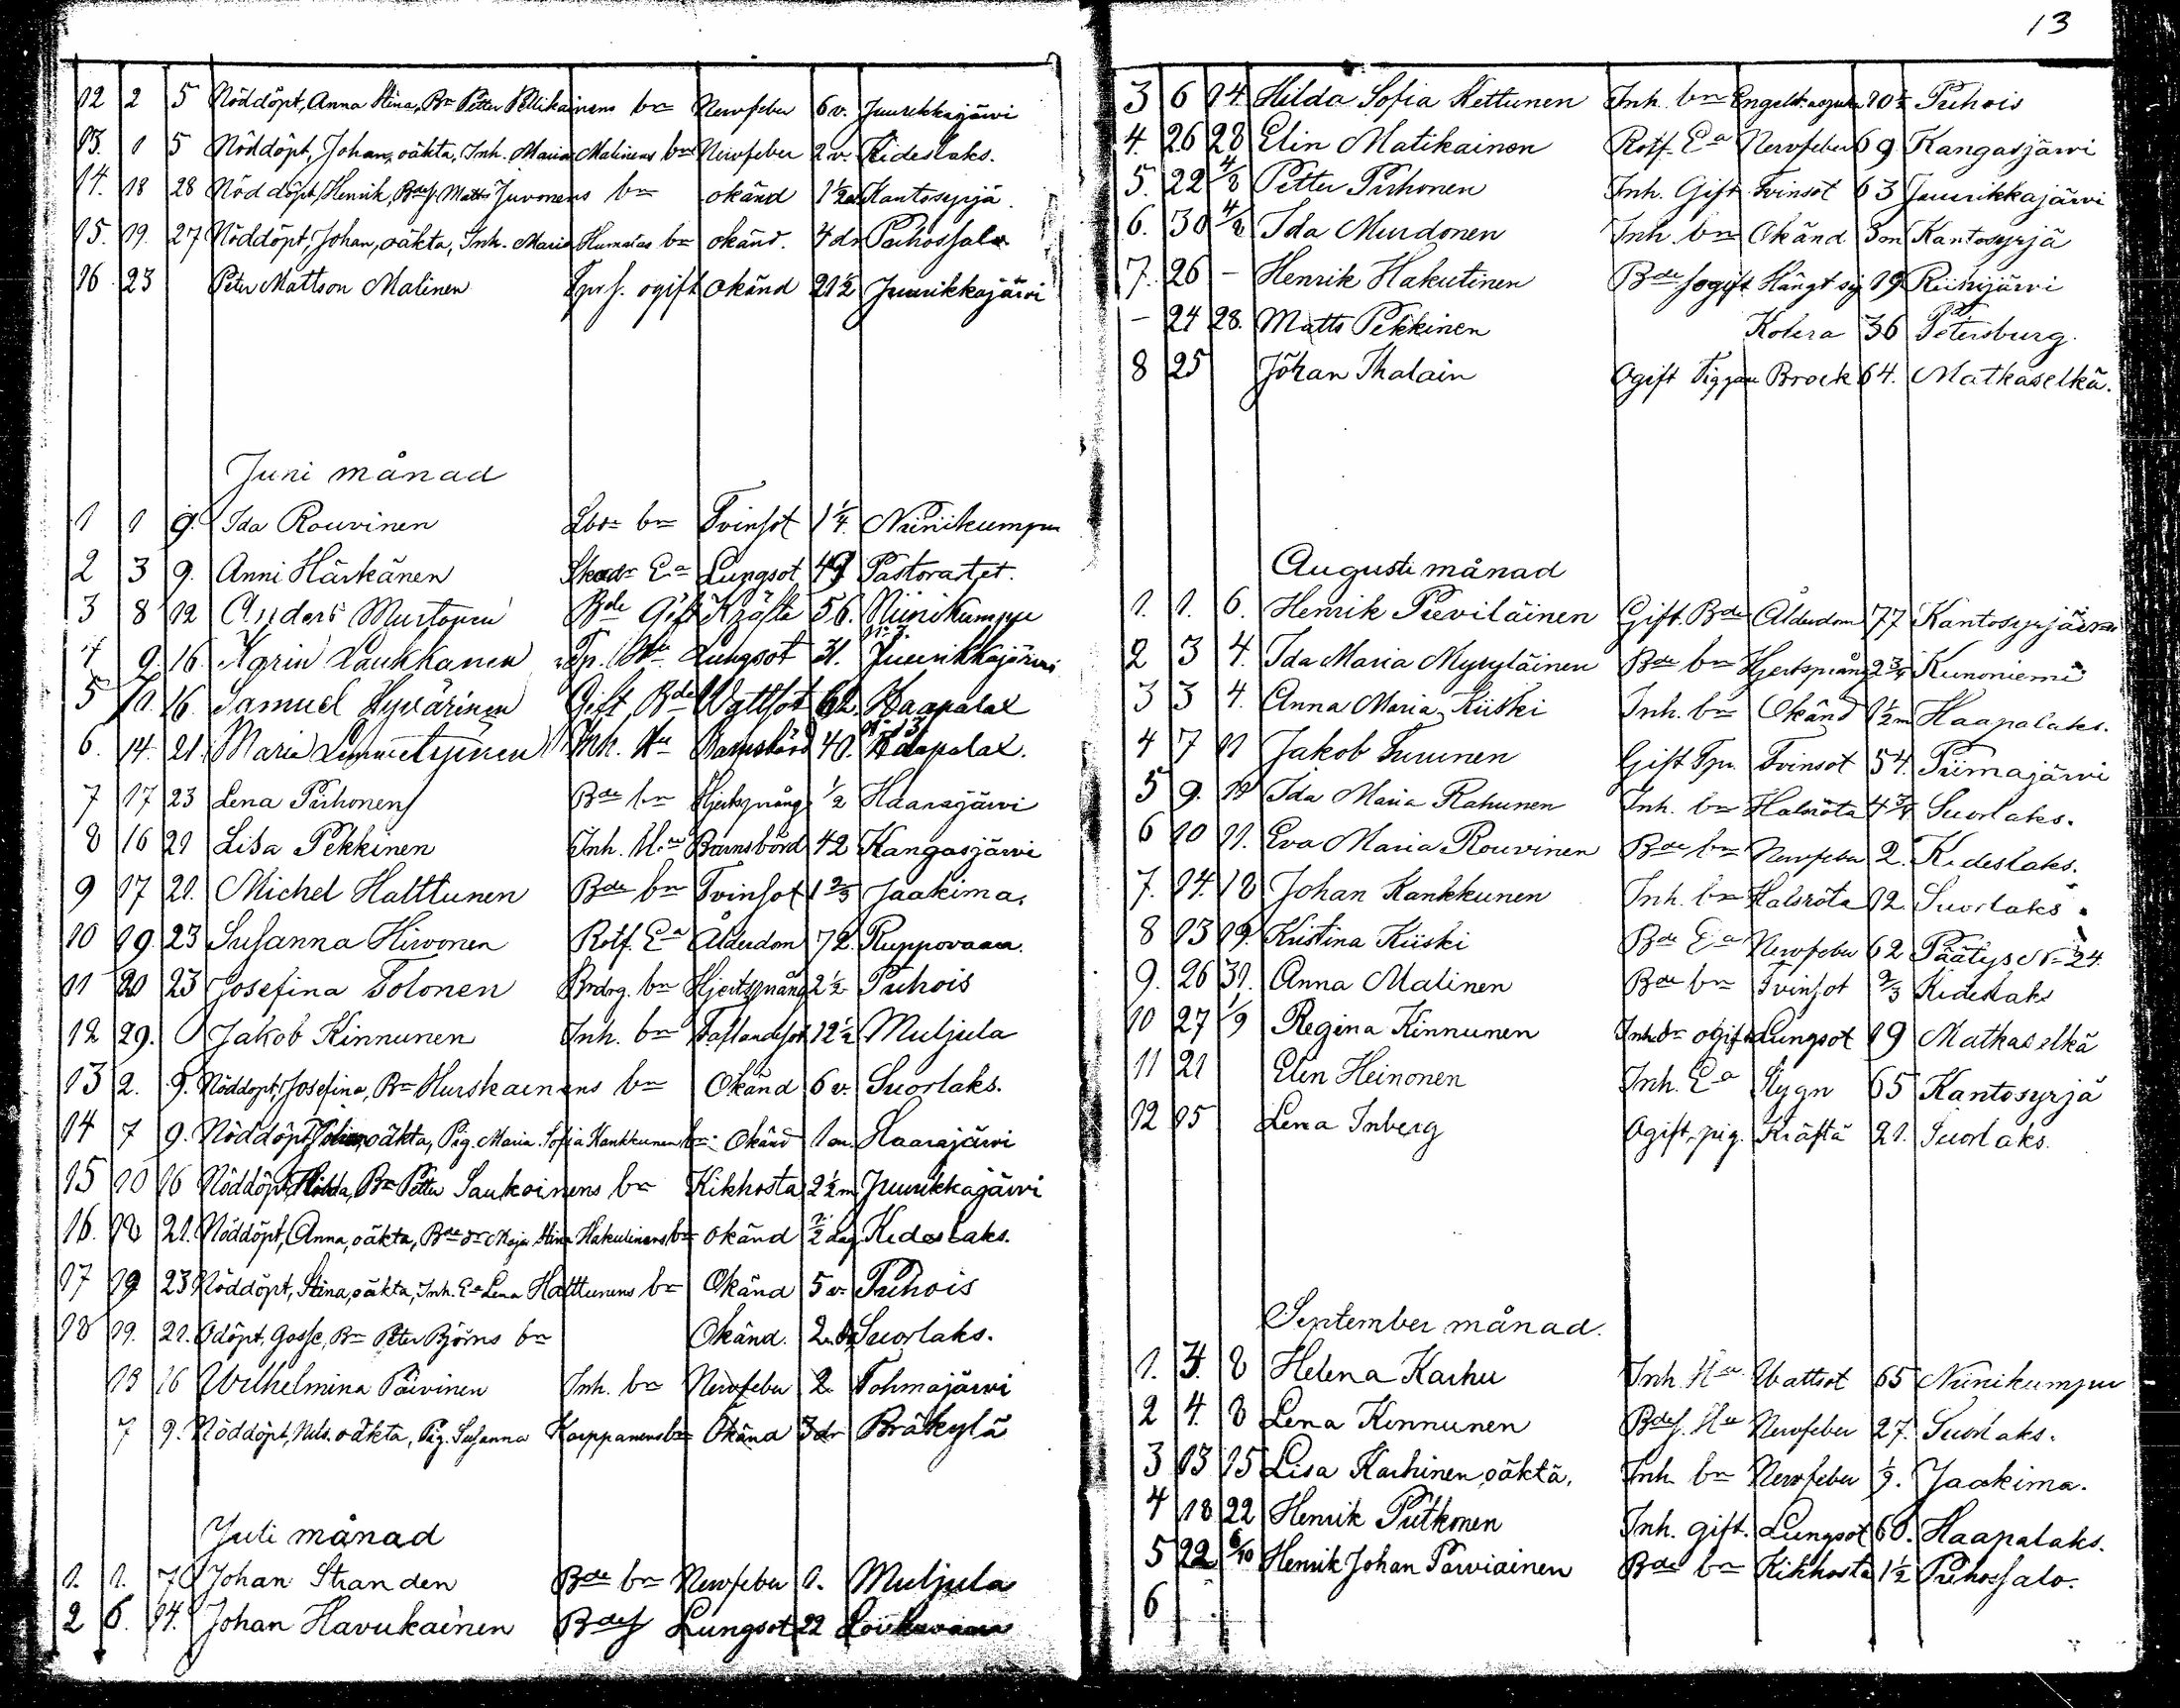 12 2 5 Nöddöpt, Anna Stina, Bn Petter Pellikainens bn Nervfeber 6 v. Juurikkajärvi
13. 1 5 Nöddöpt, Johan, oäkta, Inh. Maria Malinens bn Nervfeber 2 v. Kideslaks.
14. 18 28 Nöddöpt, Henrik, Bdes. Matts Juvonens bn okänd 1½ Kantosyrjä.
15. 19. 27 Nöddöpt, Johan, oäkta, Inh. Maria bn okänd. 4 dr Puhossalo
16 23 Peter Mattson Malinen ogift okänd 21½ Juurikkajärvi
Juni månad
1 1 9. Ida Rouvinen bn Tvinsot 1¼. Niinikumpu
2 3 9. Anni Härkänen Ea Lungsot 49 Pastoratet.
3 8 12 Anders Murtonen Bde Gift Kräfta 56. Niinikumpu
4 9. 16. Karin Laukkanen Hu Lungsot 31. Juurikkajärvi
5 11. 16. Samuel Hyvärinen Gift Bde Wattsot 62. Haapalax
6. 14. 21. Maria Inh. Hu Barnsbörd 40. Haapalax.
7 17 23 Lena Pirhonen Bde bn Hjertsprång ½ Haarajärvi
8 16 21 Lisa Pekkinen Inh. Hu Barnsbörd 42 Kangasjärvi
9 17 21. Michel Halttunen Bde bn Tvinsot 1⅔ Jaakima.
10 19. 23 Susanna Hirvonen Rotf. Ea Ålderdom 72. Ruppovaara.
11 20 23 Josefina Tolonen bn Hjertsprång 2½ Puhois
12 29. Jakob Kinnunen Inh. bn Fallandesot 12½ Muljula
13 2. 9. Nöddöpt, Josefina, Bn Hurskainens bn Okänd 6 v. Suorlaks.
14 7 9. Nöddöpt, Johan, oäkta, Pig. Maria Sofia Kankkunen bn Okänd Haarajärvi
15 10 16 Nöddöpt, Hilda, Bn Petter Saukoinens bn Kikhosta 2½ m Juurikkajärvi
16. 18 21. Nöddöpt, Anna, oäkta, Bde dr Maja Stina Hakulinens bn okänd ½ dag Kideslaks.
17 19 23 Nöddöpt, Stina, oäkta, Inh. Ea Lena Halttunens bn Okänd 5 v. Puhois
18 19. 21. Odöpt, Gosse, Bn Peter Björns bn Okänd. Suorlaks.
13 16 Wilhelmina Päivinen Inh. bn Nervfeber 2. Tohmajärvi
7 9. Nöddöpt, Nils. oäkta, Pig. Susanna Karppanens bn Okänd 3 dr Bräkylä
Juli månad
1. 1. 7 Johan Stranden Bde bn Nervfeber 1. Muljula
2 6. 14. Johan Havukainen Bdes Lungsot 22
13
3 6 14. Hilda Sofia Kettunen Inh. bn 10½ Puhois
4. 26 28 Elin Matikainen Rotf. Ea Nervfeber 69 Kangasjärvi
5. 22 4/8 Petter Pirhonen Inh. Gift Tvinsot 63 Juurikkajärvi
6. 30 4/8 Ida Murdonen Inh. bn Okänd 3 m Kantosyrjä
7. 26 – Henrik Hakulinen Bdes ogift Hängt sig 19 Riihijärvi
– 24 28. Matts Pekkinen Kolera 36 Petersburg.
8 25 Johan Ihalain Ogift Tiggare Brock 64. Matkaselkä.
Augusti månad
1. 1. 6. Henrik Pieviläinen Gift. Bde Ålderdom 77 Kantosyrjä
2 3 4. Ida Maria Myryläinen Bde bn Hjertsprång 2¾ Kunoniemi
3 3 4. Anna Maria Kiiski Inh. bn Okänd 1½ m Haapalaks.
4 7 11 Jakob Turunen Gift Tpr. Tvinsot 54. Piimajärvi
5 9. 11 Ida Maria Rahunen Inh. bn Halsröta 4¾ Suorlaks.
6 10 11. Eva Maria Rouvinen Bde bn Nervfeber 2. Kideslaks.
7. 14. 18 Johan Kankkunen Inh. bn Halsröta 12. Suorlaks.
8 13 19. Kristina Kiiski Bde Ea Nervfeber 62 Päätys No 24.
9. 26 31. Anna Malinen Bde bn Tvinsot ⅔ Kideslaks
10 27 1/9 Regina Kinnunen Inh. dr ogift Lungsot 19 Matkaselkä
11 21 Elin Heinonen Inh. Ea Stygn 65 Kantosyrjä
12 15 Lena Inberg Ogift, pig. Kräfta 21. Suorlaks.
September månad.
1. 3. 8 Helena Karhu Inh. Hu Wattsot 65 Niinikumpu
2 4. 8 Lena Kinnunen Bdes. Hu Nervfeber 27. Suorlaks.
3 13 15 Lisa Karhinen, oäktä, Inh. bn Nervfeber Jaakima.
4 18 22 Henrik Putkonen Inh. gift. Lungsot 60. Haapalaks.
5 22 6/10 Henrik Johan Parviainen Bde bn Kikhosta 1½ Puhossalo.
6